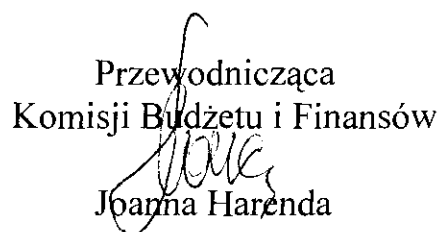 Przewodnicząca
Komisji Budżetu i Finansów
Joanna Harenda